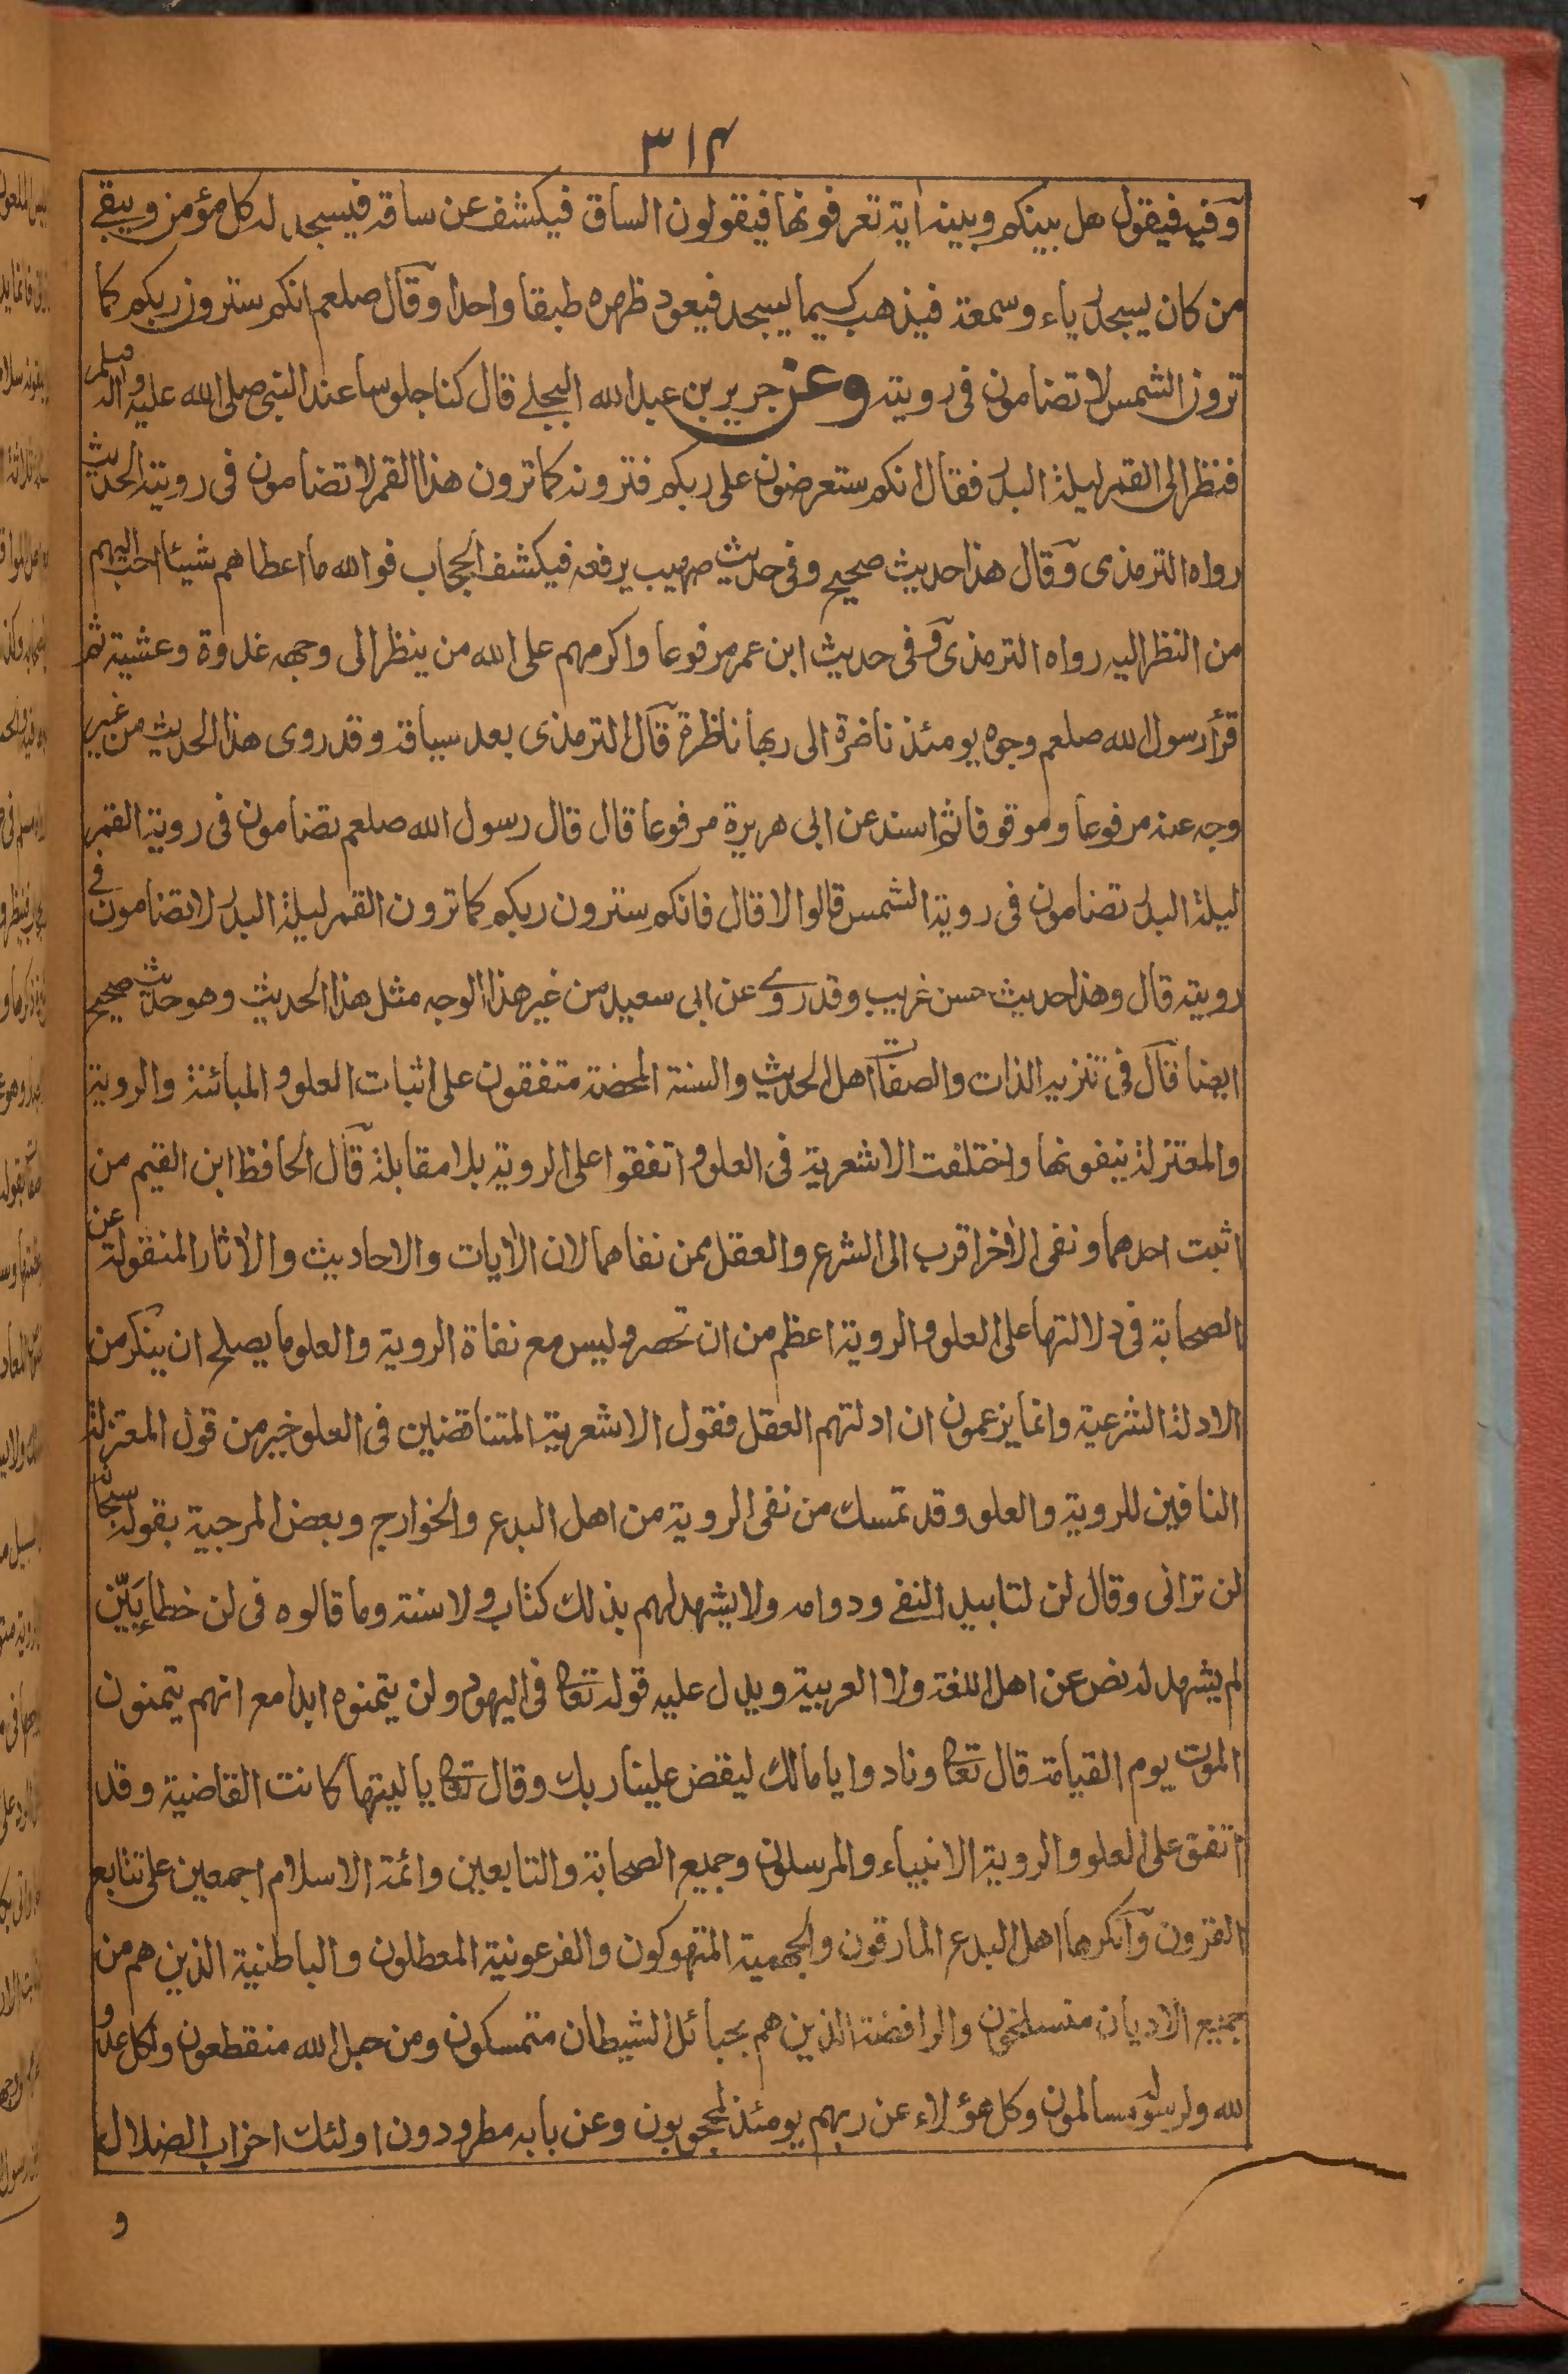 ٣١٤
وفيه فيقول هل بينكم وبينه اية تعرفونها فيقولون الساق فيكشف عن ساقه فيسجد له كل مؤمن ويبقى
من كان يسجد رياء وسمعة فيذهب كيما يسجد فيعود ظهره طبقا واحدا وقال صلعم انكم سترون ربكم كما
ترون الشمس لا تضامون فى رويته وعن جرير بن عبد الله البجلي قال كنا جلوسا عند النبى صلى الله عليه واله وسلم
فنظر الى القمر ليلة البدر فقال انكم ستعرضون على ربكم فترونه كما ترون هذا القمر لا تضامون فى رويته الحديث
رواه الترمذى وقال هذا حديث صحيح وفى حديث صهيب يرفعه فيكشف الحجاب فوالله ما اعطاهم شيئا احب اليهم
من النظر اليه رواه الترمذى وفى حديث ابن عمر مرفوعا واكرمهم على الله من ينظر الى وجهه غدوة وعشية ثم
قرأ رسول الله صلعم وجوه يومئذ ناضرة الى ربها ناظرة قال الترمذى بعد سياقه وقد روى هذا الحديث من غير
وجه عنه مرفوعا وموقوفا ثم اسند عن ابى هريرة مرفوعا قال قال رسول الله صلعم تضامون فى روية القمر
ليلة البدر تضامون فى روية الشمس قالوا لا قال فانكم سترون ربكم كما ترون القمر ليلة البدر لا تضامون فى
رويته قال وهذا حديث حسن غريب وقد روى عن ابى سعيد من غير هذا الوجه مثل هذا الحديث وهو حديث صحيح
ايضا قال فى تنزيه الذات والصفات اهل الحديث والسنة المحضة متفقون على اثبات العلو والمبائنة والروية
والمعتزلة ينفونها واختلفت الاشعرية فى العلو واتفقوا على الروية بلا مقابلة قال الحافظ ابن القيم من
اثبت احدهما ونفى الأخر اقرب الى الشرع والعقل ممن نفاهما لان الأيات والاحاديث والأثار المنقولة عن
الصحابة فى دلالتها على العلو والروية اعظم من ان تحصر وليس مع نفاة الروية والعلو ما يصلح ان ينكر من
الادلة الشرعية وانما يزعمون ان ادلتهم العقل فقول الاشعرية المتناقضين فى العلو خير من قول المعتزلة
النافين للروية والعلو وقد تمسك من نفى الروية من اهل البدع والخوارج وبعض المرجية بقوله سبحانه
لن ترانى وقال لن لتابيد النفى ودوامه ولا يشهد لهم بذلك كتاب ولا سنة وما قالوه فى لن خطأ بَيّن
لم يشهد له نص عن اهل اللغة ولا العربية ويدل عليه قوله تعالى فى اليهود ولن يتمنوه ابدا مع انهم يتمنون
الموت يوم القيامة قال تعالى ونادوا يا مالك ليقض علينا ربك وقال تعالى يا ليتها كانت القاضية وقد
اتفق على العلو والروية الانبياء والمرسلون وجميع الصحابة والتابعين وائمة الاسلام اجمعين على تتابع
القرون وانكرها اهل البدع المارقون والجهمية المتهوكون والفرعونية المعطلون والباطنية الذين هم من
جميع الاديان منسلخون والرافضة الذين هم بحبائل الشيطان متمسكون ومن حبل الله منقطعون ولكل عدو
لله ولرسوله مسالمون وكل هؤلاء عن ربهم يومئذ لمحجوبون وعن بابه مطرودون اولئك احزاب الضلال
و